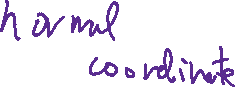 normal
coordinate